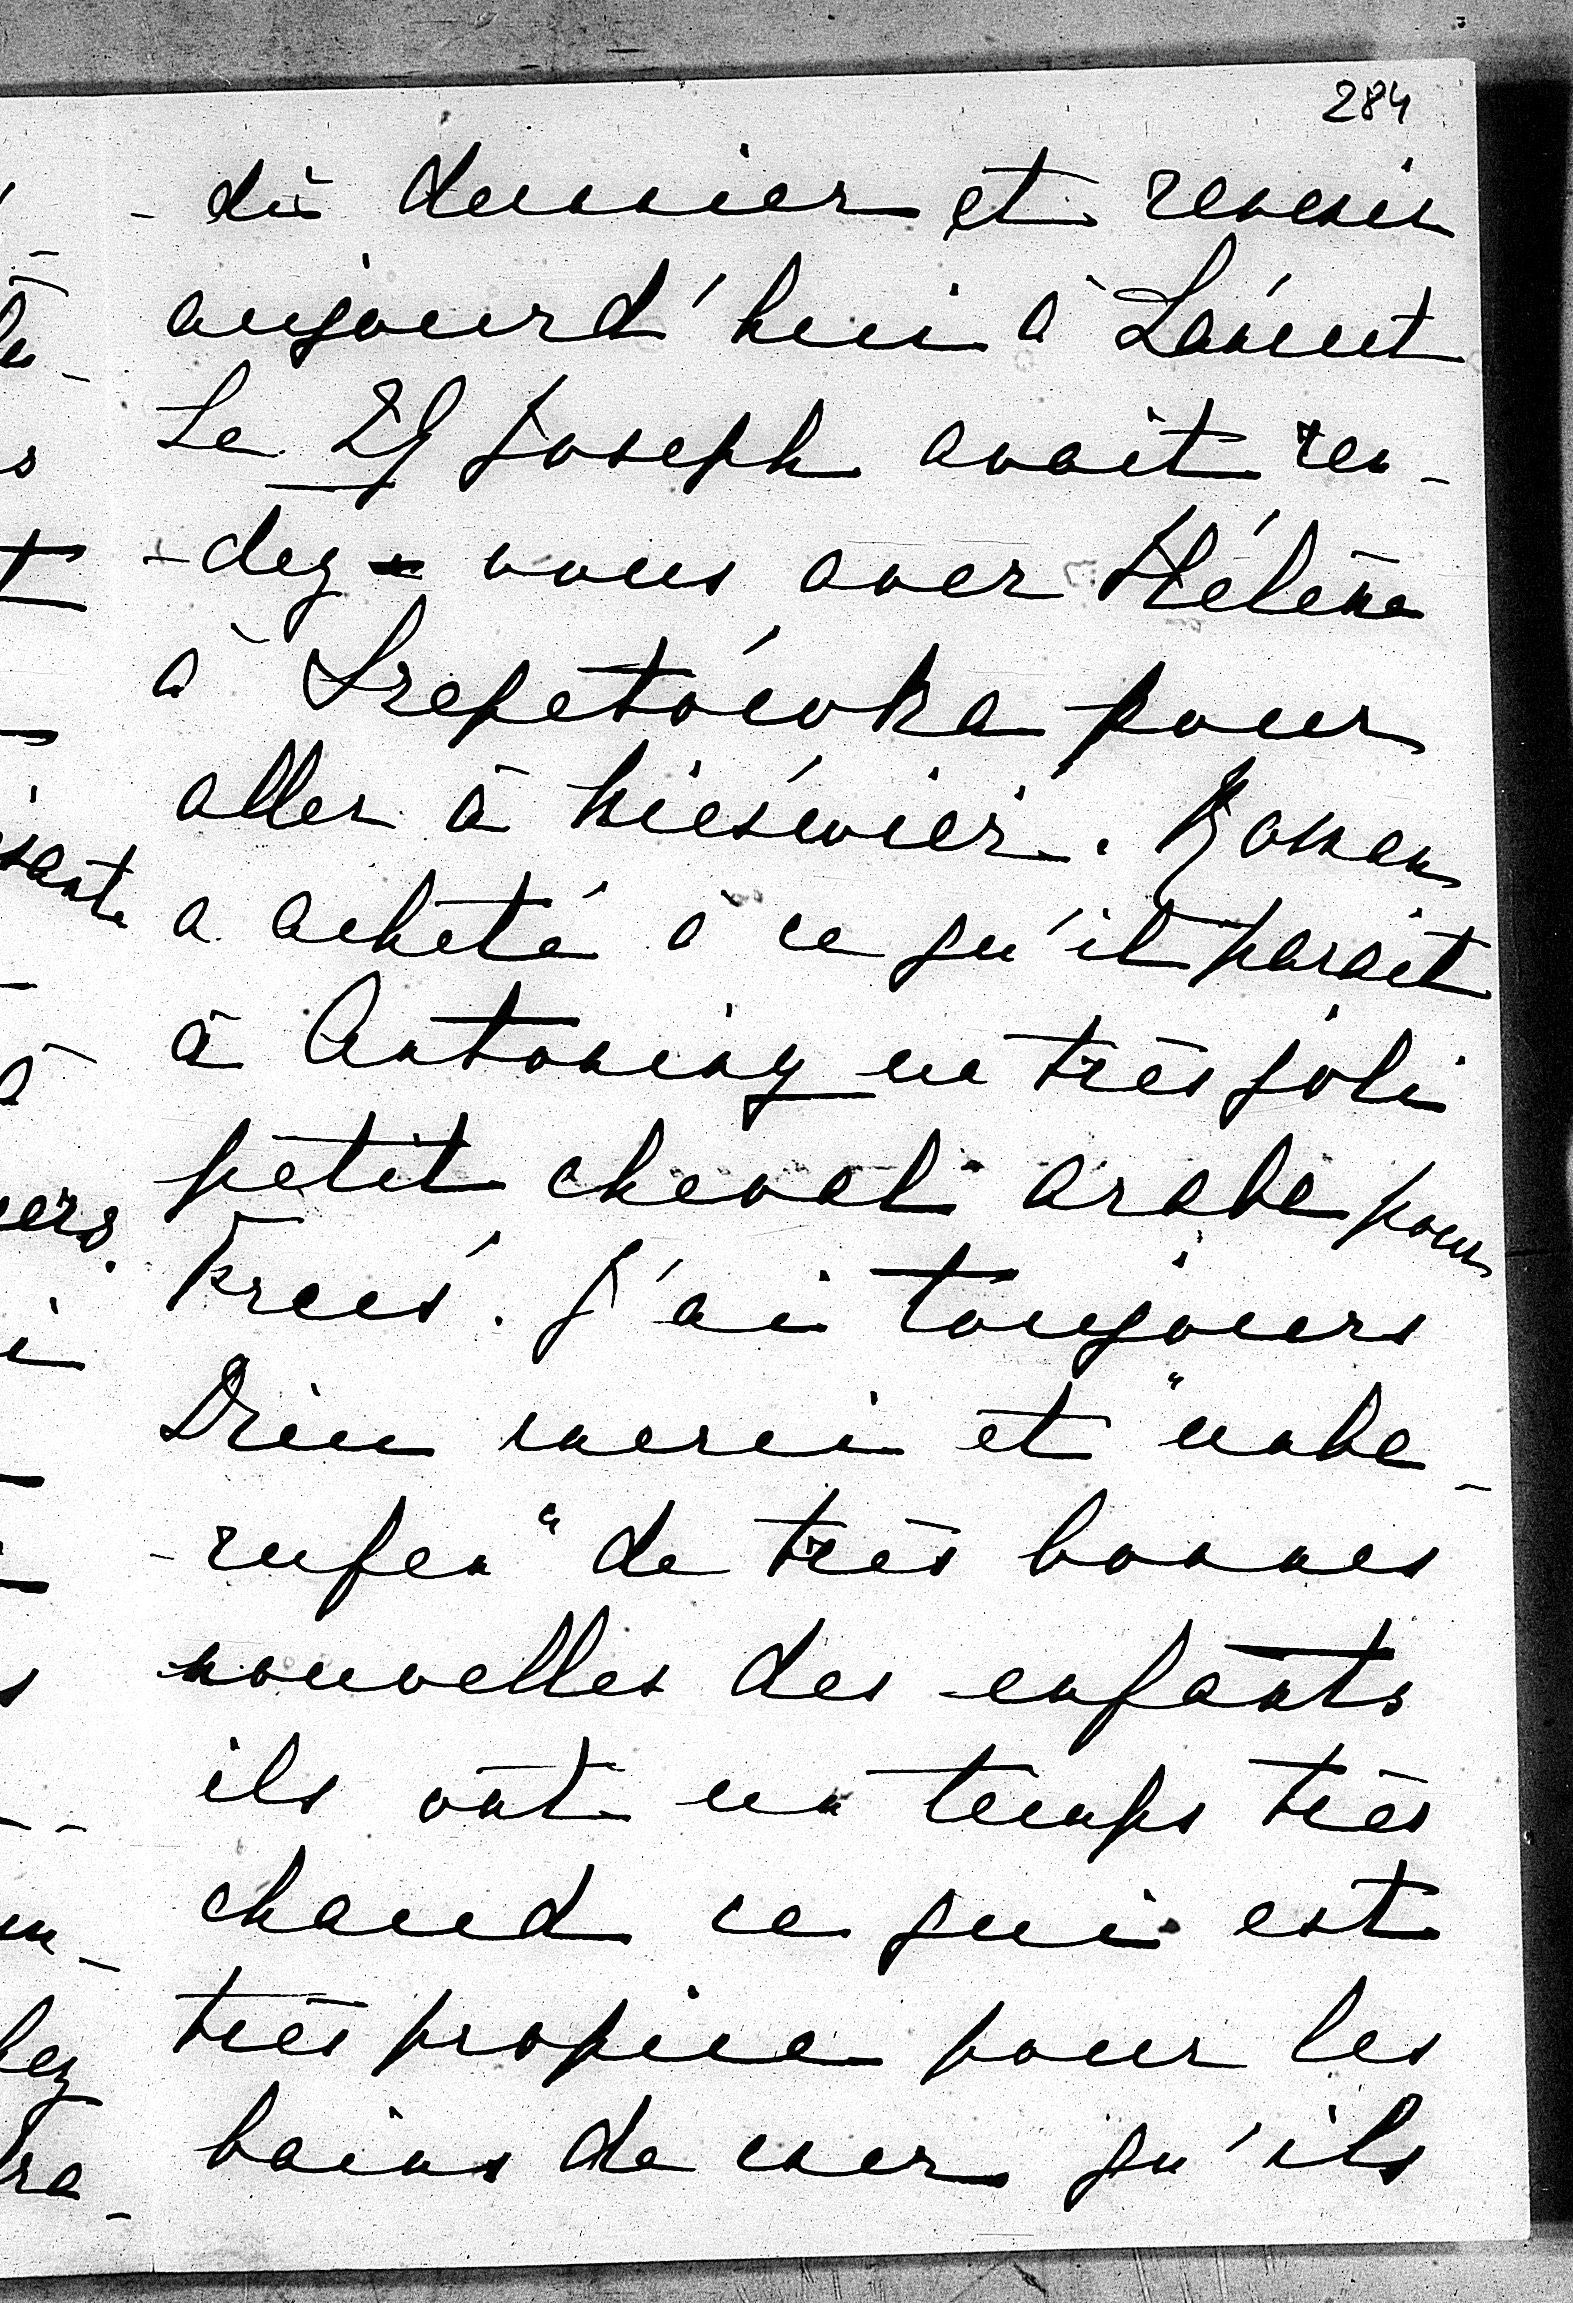 284
-di dernier et revenir
aujourd'hui à Łańcut
Le 29 Joseph avait ren-
-dez-vous avec Hélène
à Szepetówka pour
aller à Nieśwież. Roman
a acheté à ce qu'il parait
à Antoniny un très joli
petit cheval arabe pour
Krześ. J'ai toujours
Dieu merci et "unbe-
-rufen" de très bonnes
nouvelles des enfants
ils ont un temps très
chaud ce qui est
très propice pour les
bains de mer qu'ils